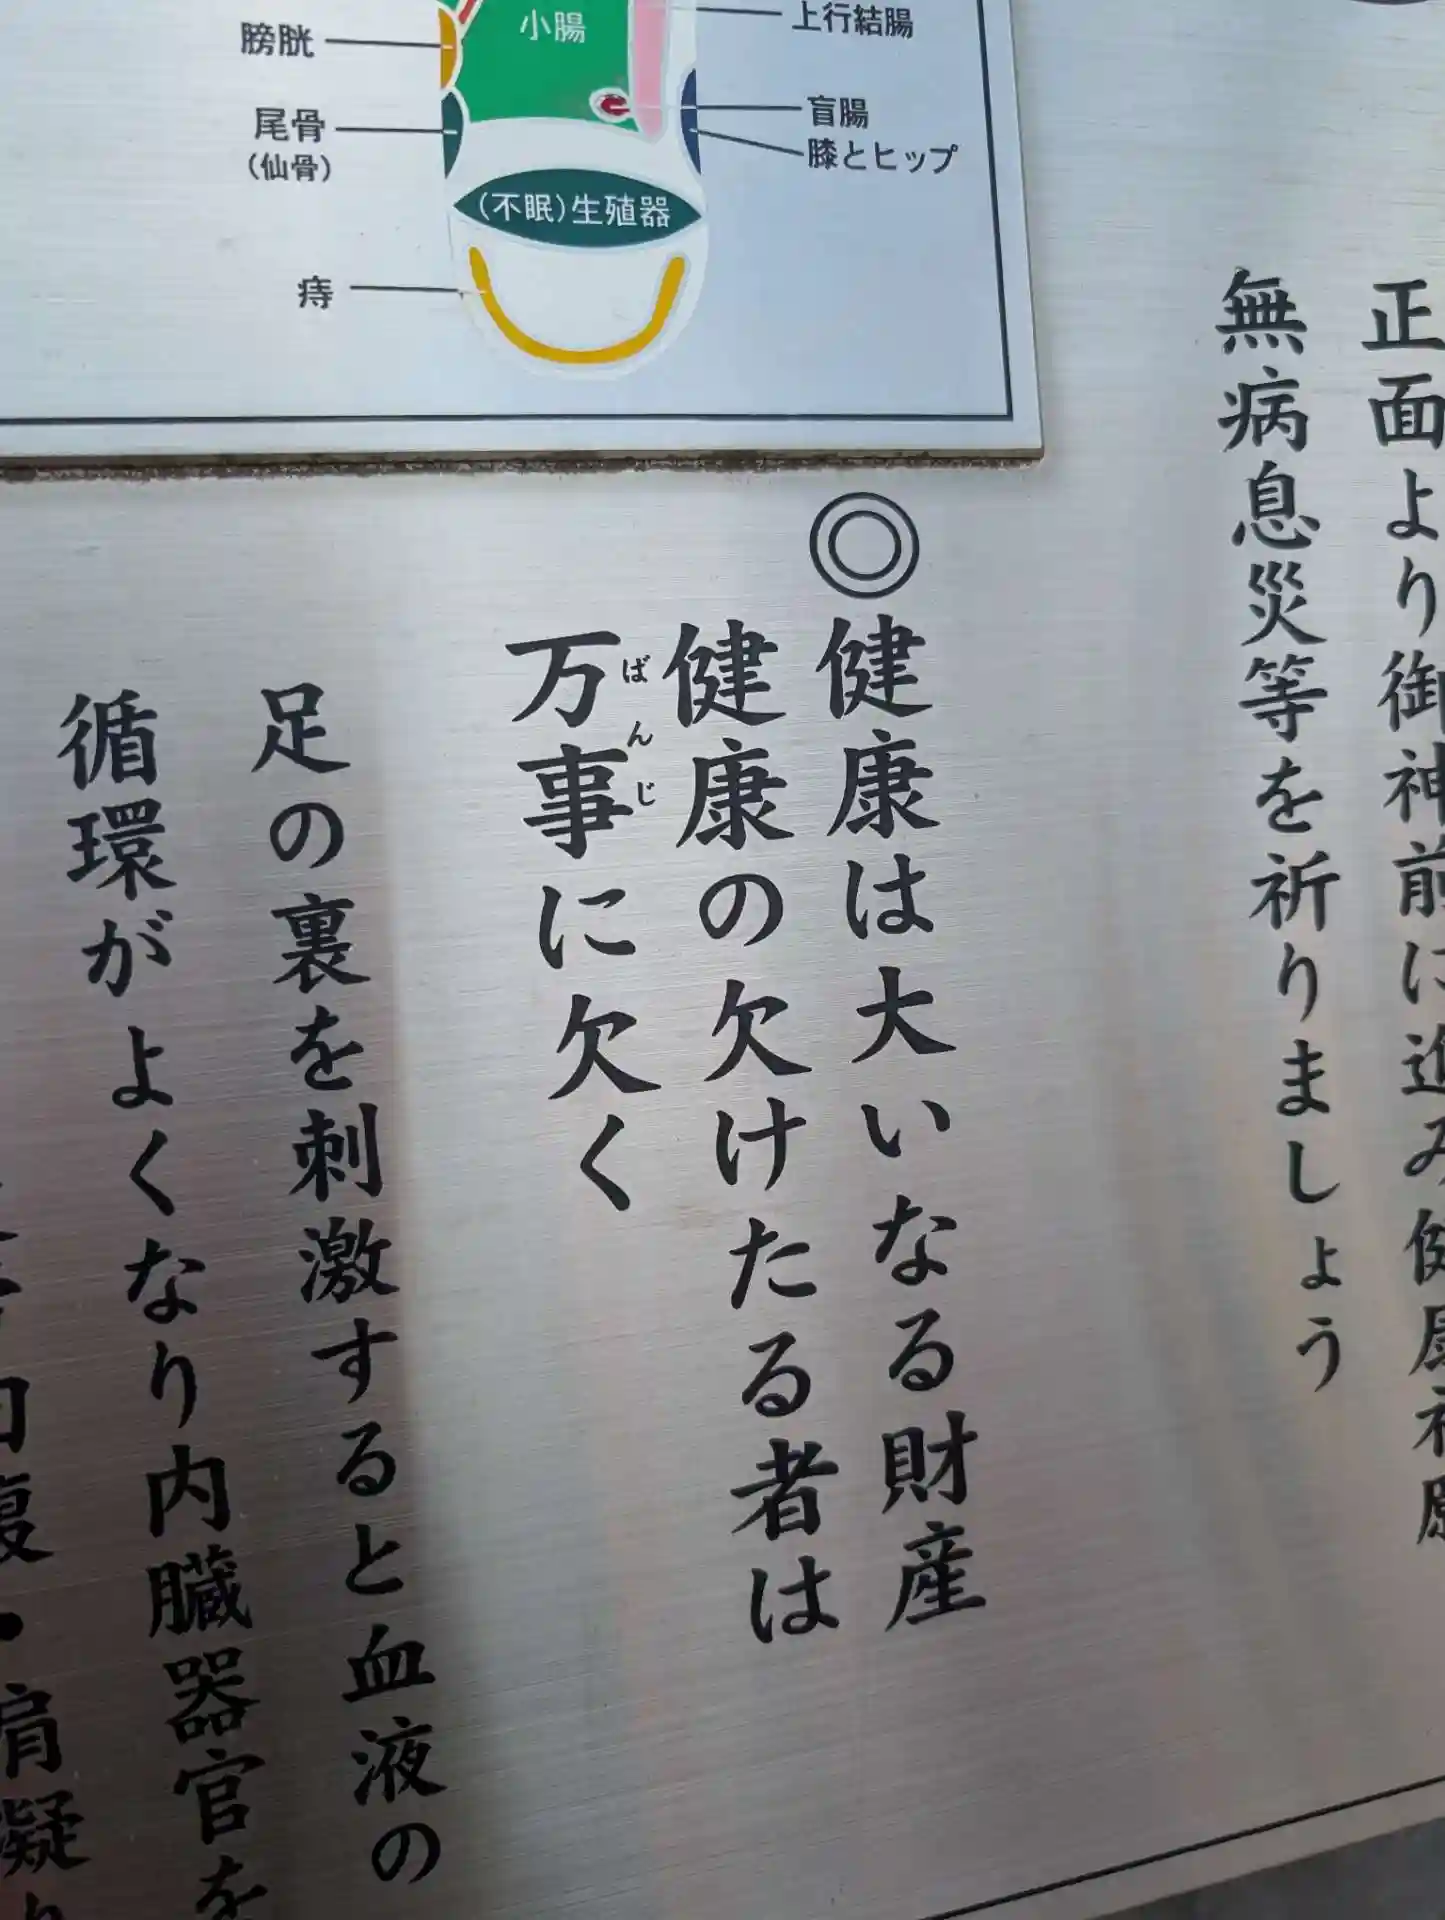 小腸
上行結腸
膀胱
盲腸
尾骨
(仙骨)
膝とヒップ
(不眠)生殖器
痔
正面より御神前に進み健康祈願
無病息災等を祈りましょう
◎健康は大いなる財産
健康の欠けたる者は
万事に欠く
ばんじ
足の裏を刺激すると血液の
循環がよくなり内臓器官を